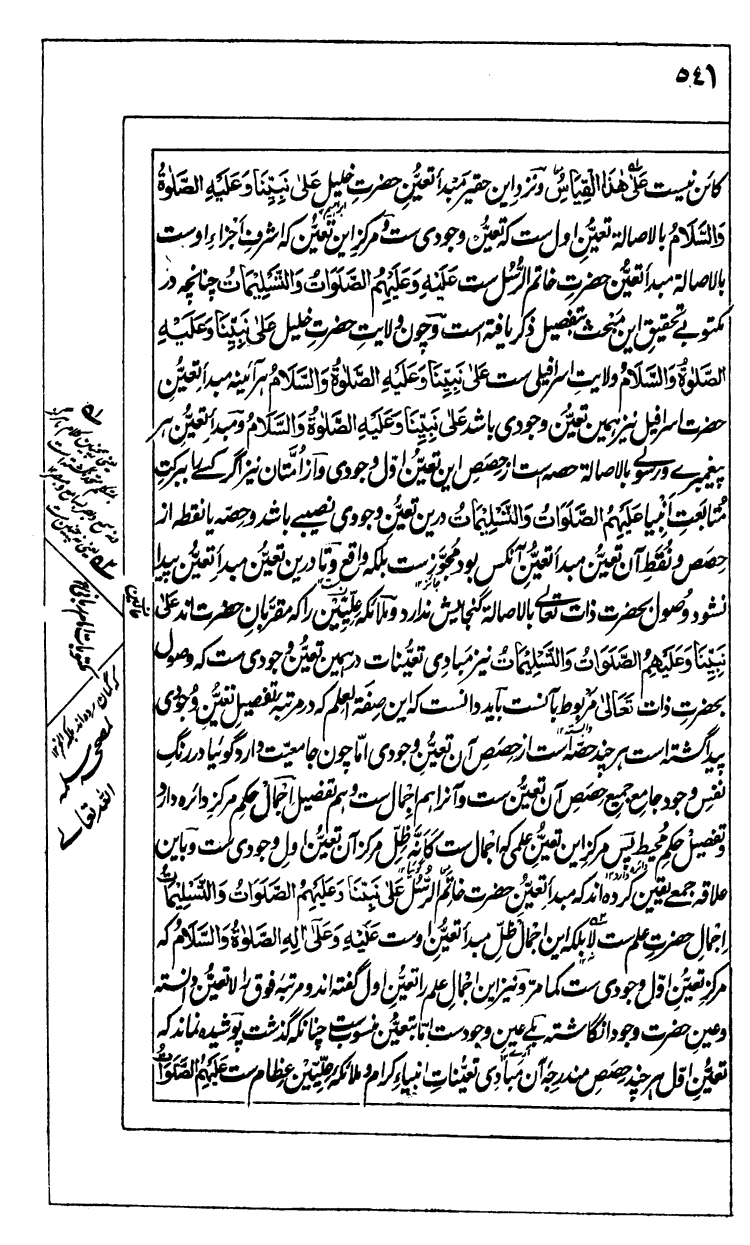 ٥٤٦
کائن نیست عَلیٰ هٰذَا الْقِیَاسُ و نزد این حقیر مَبدأ تعیّنِ حضرتِ خلیل عَلیٰ نَبِیِّنَا وَ عَلَیْهِ الصَّلٰوةُ
وَالسَّلَامُ بالاصالة تعیّنِ اول ست که تعیّن وجودی ست و مرکزِ این تعیّن که اشرفِ اَجزاءِ اوست
بالاصالة مبدأ تعیّن حضرتِ خاتم الرُّسُل ست عَلَیْهِ وَ عَلَیْهِمُ الصَّلَوَاتُ وَ التَّسْلِیْمَاتُ چنانچه در
مکتوبے تحقیقِ این مبحث بتفصیل ذکر یافته است و چون ولایتِ حضرتِ خلیل عَلیٰ نَبِیِّنَا وَ عَلَیْهِ
الصَّلٰوةُ وَ السَّلَامُ ولایتِ اسرافیلی ست عَلیٰ نَبِیِّنَا وَ عَلَیْهِ الصَّلٰوةُ وَ السَّلَامُ هر آئینه مبدأ تعیّنِ
حضرت اسرافیل نیز همین تعیّن وجودی باشد عَلیٰ نَبِیِّنَا وَ عَلَیْهِ الصَّلٰوةُ وَ السَّلَامُ و مَبدأ تعیّن هر
پیغمبرے و رسولے بالاصالة حصه است از حِصَصِ این تعیّن اوّل وجودی و از اُمّتان نیز اگر کسے را ببرکتِ
مُتابَعتِ اَنْبِیَا عَلَیْهِمُ الصَّلَوَاتُ وَ التَّسْلِیْمَاتُ درین تعیّن وجودی نصیبے باشد و حِصّه یا نقطه از
حِصَص و نُقَطِ آن تعیّن مبدأ تعیّن آنکس بود مجوَّز ست بلکه واقع و تا درین تعیّن مبدأ تعیّن پیدا
نشود وُصول بحضرت ذات تَعَالیٰ بالاصالة گنجایش ندارد و ملائکه عِلِّیِّین را که مقرّبانِ حضرت اند عَلیٰ
نَبِیِّنَا وَ عَلَیْهِمُ الصَّلَوَاتُ وَ التَّسْلِیْمَاتُ نیز مَبادی تعیُّنات در همین تعیّن وجودی ست که وصول
بحضرتِ ذات تَعَالیٰ مربوط بآنست باید دانست که این صفة العلم که در مرتبه تفصیل تعیّن وجودی
پیدا گشته است هر چند حصّه است از حِصَصِ آن تعیّن وجودی امّا چون جامعیّت دارد گوئیا در رنگِ
نفسِ وجود جامع جمیع حِصَص آن تعیّن ست و آنرا هم اِجمال ست و هم تفصیل اجمال حکم مرکز دائره دارد
و تفصیل حکمِ مُحیط پس مرکزِ این تعیّن علمی که اجمال ست کَأَنَّهُ ظِلّ مرکز آن تعیّن اول وجودی ست و باین
علاقه جمعے یقین کرده اند که مبدأ تعیّن حضرت خاتم الرُّسُل عَلیٰ نَبِیِّنَا وَ عَلَیْهِمُ الصَّلَوَاتُ وَ التَّسْلِیْمَاتُ
اِجمال حضرتِ علم ست لا بلکه این اجمال ظِلّ مبدأ تعیّن اوست عَلَیْهِ وَ عَلیٰ اٰلِهِ الصَّلٰوةُ وَ السَّلَامُ که
مرکزِ تعیّنِ اوّل وجودی ست کَمَا مَرَّ و نیز این اجمالِ علم را تعیّنِ اول گفته اند و مرتبۀ فوق را لاتعیّن دانسته
و عینِ حضرت وجود انگاشته بلے عینِ وجود ست امّا بتعیّن منسوب ست چنانکه گذشت پوشیده نماند که
تعیّنِ اوّل هر چند حِصَصِ مندرجۀ آن مَبادی تعیّناتِ انبیاءِ کرام و ملائکه عِلِّیِّیْنِ عِظام ست عَلَیْهِمُ الصَّلَوَاتُ
مکتوبات امام ربانی
سلمه
الله تعالے